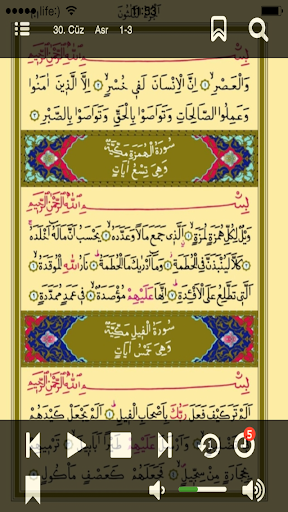 life:) 11:53
30. Cüz Asr 1-3
بِسْــــمِ اللّٰهِ الرَّحْمٰنِ الرَّحٖيمِ
وَالْعَصْرِ ۙ ﴿١﴾ اِنَّ الْاِنْسَانَ لَفٖي خُسْرٍ ۙ ﴿٢﴾ اِلَّا الَّذٖينَ اٰمَنُوا
وَعَمِلُوا الصَّالِحَاتِ وَتَوَاصَوْا بِالْحَقِّ وَتَوَاصَوْا بِالصَّبْرِ ﴿٣﴾
سُورَةُ الْهُمَزَةِ مَكِّيَّةٌ
وَهِيَ تِسْعُ اٰيَاتٍ
بِسْــــمِ اللّٰهِ الرَّحْمٰنِ الرَّحٖيمِ
وَيْلٌ لِكُلِّ هُمَزَةٍ لُمَزَةٍ ۙ ﴿١﴾ اَلَّذٖي جَمَعَ مَالًا وَعَدَّدَهُ ۙ ﴿٢﴾ يَحْسَبُ اَنَّ مَالَهُ اَخْلَدَهُ
﴿٣﴾ كَلَّا لَيُنْبَذَنَّ فِي الْحُطَمَةِ ﴿٤﴾ وَمَا اَدْرٰيكَ مَا الْحُطَمَةُ ﴿٥﴾ نَارُ اللّٰهِ الْمُوقَدَةُ ۙ ﴿٦﴾
اَلَّتٖي تَطَّلِعُ عَلَى الْاَفْـِٔدَةِ ﴿٧﴾ اِنَّهَا عَلَيْهِمْ مُؤْصَدَةٌ ۙ ﴿٨﴾ فٖي عَمَدٍ مُمَدَّدَةٍ ﴿٩﴾
سُورَةُ الْفٖيلِ مَكِّيَّةٌ
وَهِيَ خَمْسُ اٰيَاتٍ
بِسْــــمِ اللّٰهِ الرَّحْمٰنِ الرَّحٖيمِ
اَلَمْ تَرَ كَيْفَ فَعَلَ رَبُّكَ بِاَصْحَابِ الْفٖيلِ ﴿١﴾ اَلَمْ يَجْعَلْ كَيْدَهُمْ
عَلَيْهِمْ طَيْرًا اَبَابٖيلَ
بِحِجَارَةٍ مِنْ سِجّٖيلٍ ﴿٤﴾ فَجَعَلَهُمْ كَعَصْفٍ مَأْكُولٍ ﴿٥﴾
1
5